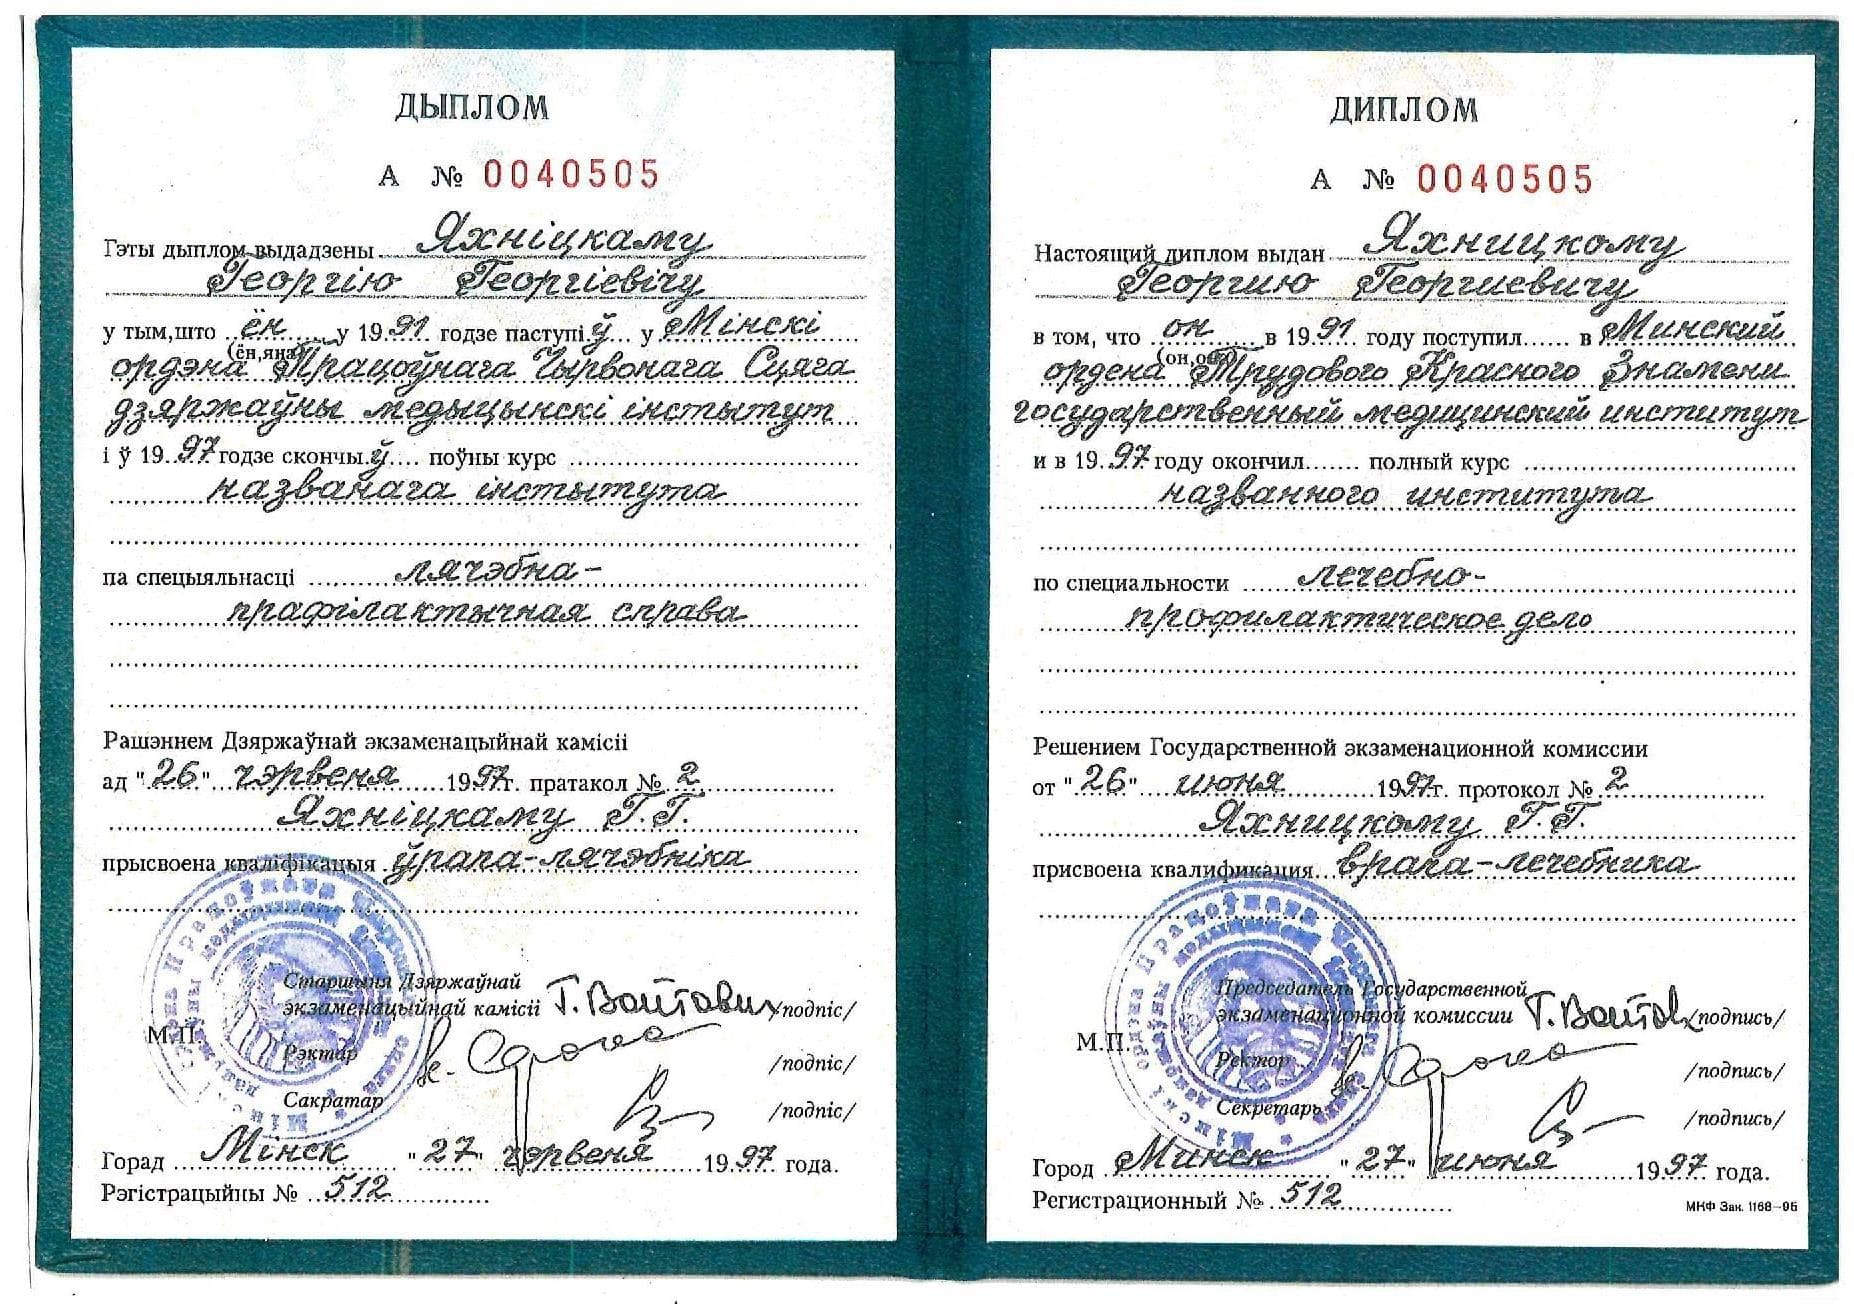 ДЫПЛОМ
А № 0040505
Гэты дыплом выдадзены Яхніцкаму
Георгію Георгіевічу
у тым, што ён у 1991 годзе паступіў у Мінскі
(ён, яна)
ордэна Працоўнага Чырвонага Сцяга
дзяржаўны медыцынскі інстытут
і ў 1997 годзе скончыў поўны курс
названага інстытута
па спецыяльнасці лячэбна-
прафілактычная справа
Рашэннем Дзяржаўнай экзаменацыйнай камісіі
ад "26" чэрвеня 1997г. пратакол № 2
Яхніцкаму Г.Г.
прысвоена кваліфікацыя ўрача-лячэбніка
Старшыня Дзяржаўнай
экзаменацыйнай камісіі Г. Вайтович /подпіс/
М.П.
Рэктар /подпіс/
Сакратар /подпіс/
Горад Мінск "27" чэрвеня 1997 года.
Рэгістрацыйны № 512
ДИПЛОМ
А № 0040505
Настоящий диплом выдан Яхницкому
Георгию Георгиевичу
в том, что он в 1991 году поступил в Минский
(он, она)
ордена Трудового Красного Знамени
государственный медицинский институт
и в 1997 году окончил полный курс
названного института
по специальности лечебно-
профилактическое дело
Решением Государственной экзаменационной комиссии
от "26" июня 1997г. протокол № 2
Яхницкому Г.Г.
присвоена квалификация врача-лечебника
Председатель Государственной
экзаменационной комиссии /подпись/
М.П.
Ректор /подпись/
Секретарь /подпись/
Город Минск "27" июня 1997 года.
Регистрационный № 512
МКФ Зак. 1168–95